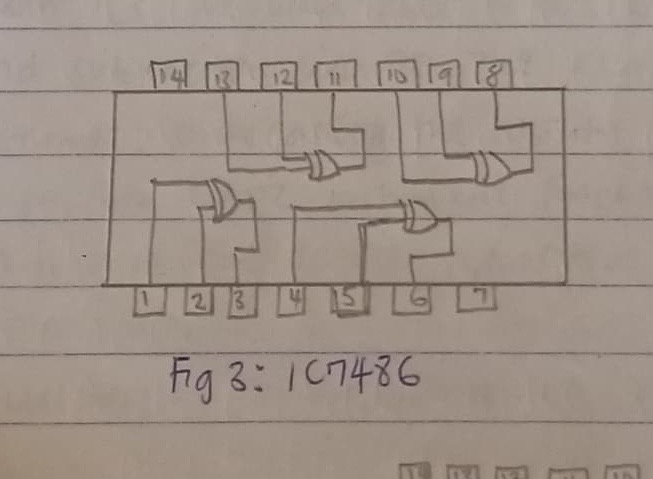 14 13 12 11 10 9 8
1 2 3 4 5 6 7
Fig 3: IC7486